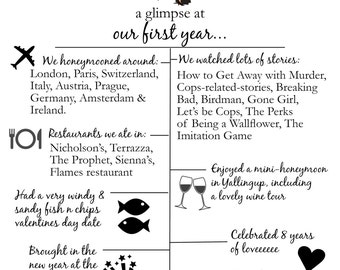 a glimpse at
our first year...
We honeymooned around:
London, Paris, Switzerland,
Italy, Austria, Prague,
Germany, Amsterdam &
Ireland.
We watched lots of stories:
How to Get Away with Murder,
Cops-related-stories, Breaking
Bad, Birdman, Gone Girl,
Let's be Cops, The Perks
of Being a Wallflower, The
Imitation Game
Restaurants we ate in:
Nicholson's, Terrazza,
The Prophet, Sienna's,
Flames restaurant
Enjoyed a mini-honeymoon
in Yallingup, including
a lovely wine tour
Had a very windy &
sandy fish n chips
valentines day date
Celebrated 8 years
of loveeeeee
Brought in the
new year at the